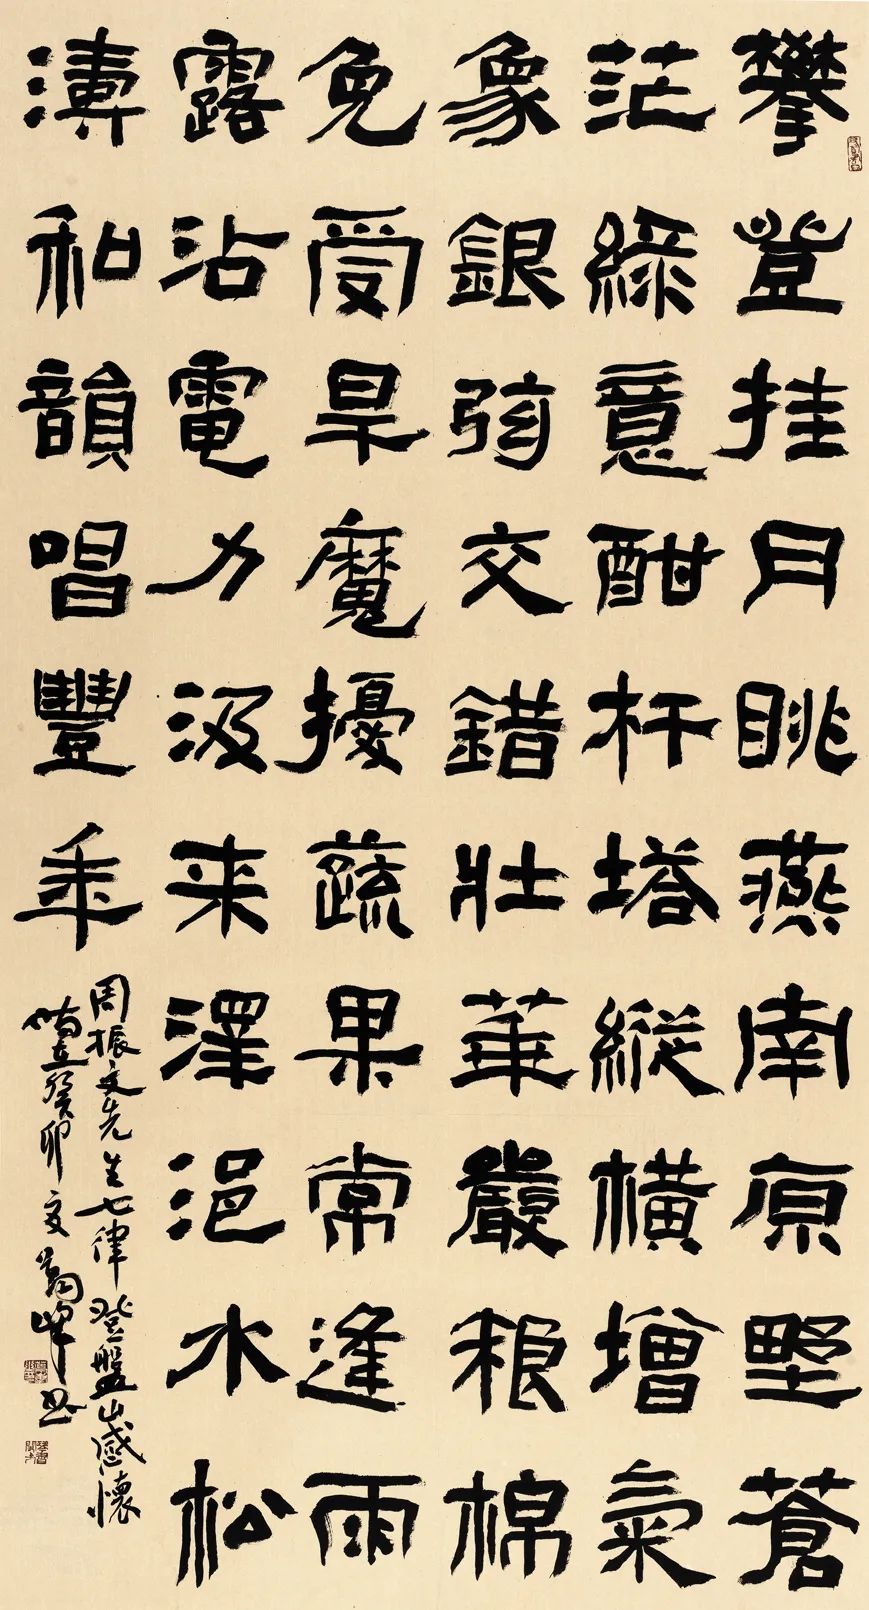 攀登挂月眺燕南原野蒼
茫綠意酣杆塔縱橫增氣
象銀弦交錯壯華嚴粮棉
免受旱魔擾蔬果常逢雨
露沾電力汲来澤浥水松
濤和韻唱豐年
周振文先生七律登盤山感懷
癸卯夏萬峰書